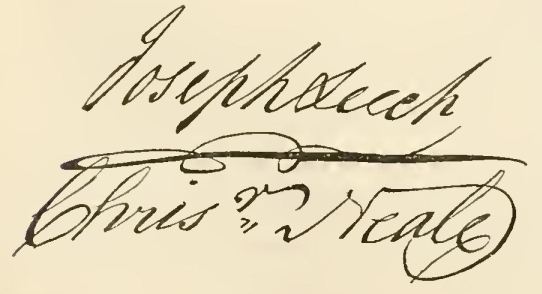 Joseph Leech
Chrisr Neale